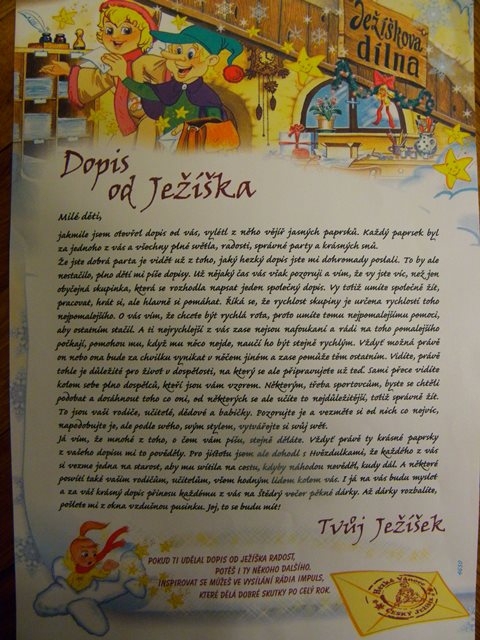 Ježíškova
dílna
Dopis
od Ježíška
Milé děti,
jakmile jsem otevřel dopis od vás, vylétl z něho vějíř jasných paprsků. Každý paprsek byl
za jednoho z vás a všechny plné světla, radosti, správné party a krásných snů.
Že jste dobrá parta je vidět už z toho, jaký hezký dopis jste mi dohromady poslali. To by ale
nestačilo, plno dětí mi píše dopisy. Už nějaký čas vás však pozoruji a vím, že vy jste víc, než jen
obyčejná skupinka, která se rozhodla napsat jeden společný dopis. Vy totiž umíte společně žít,
pracovat, hrát si, ale hlavně si pomáhat. Říká se, že rychlost skupiny je určena rychlostí toho
nejpomalejšího. O vás vím, že chcete být rychlá rota, proto umíte tomu nejpomalejšímu pomoci,
aby ostatním stačil. A ti nejrychlejší z vás zase nejsou nafoukaní a rádi na toho pomalejšího
počkají, pomohou mu, když mu něco nejde, naučí ho být stejně rychlým. Vždyť možná právě
on nebo ona bude za chvilku vynikat v něčem jiném a zase pomůže těm ostatním. Vidíte, právě
tohle je důležité pro život v dospělosti, na který se ale připravujete už teď. Sami přece vidíte
kolem sebe plno dospělých, kteří jsou vám vzorem. Některým, třeba sportovcům, byste se chtěli
podobat a dosáhnout toho co oni, od některých se ale učíte to nejdůležitější, totiž správně žít.
To jsou vaši rodiče, učitelé, dědové a babičky. Pozorujte je a vezměte si od nich co nejvíc,
napodobujte je, ale podle svého, svým stylem, vytvářejte si svůj svět.
Já vím, že mnohé z toho, o čem vám píšu, stejně děláte. Vždyť právě ty krásné paprsky
z vašeho dopisu mi to pověděly. Pro jistotu jsem ale dohodl s Hvězdulkami, že každého z vás
si vezme jedna na starost, aby mu svítila na cestu, kdyby náhodou nevěděl, kudy dál. A některé
posvítí také vašim rodičům, učitelům, všem hodným lidem kolem vás. I já na vás budu myslet
a za váš krásný dopis přinesu každému z vás na Štědrý večer pěkné dárky. Až dárky rozbalíte,
pošlete mi z okna vzdušnou pusinku. Joj, to se budu mít!
Tvůj Ježíšek
POKUD TI UDĚLAL DOPIS OD JEŽÍŠKA RADOST,
POTĚŠ I TY NĚKOHO DALŠÍHO.
INSPIROVAT SE MŮŽEŠ VE VYSÍLÁNÍ RÁDIA IMPULS,
KTERÉ DĚLÁ DOBRÉ SKUTKY PO CELÝ ROK.
Český Ježíšek